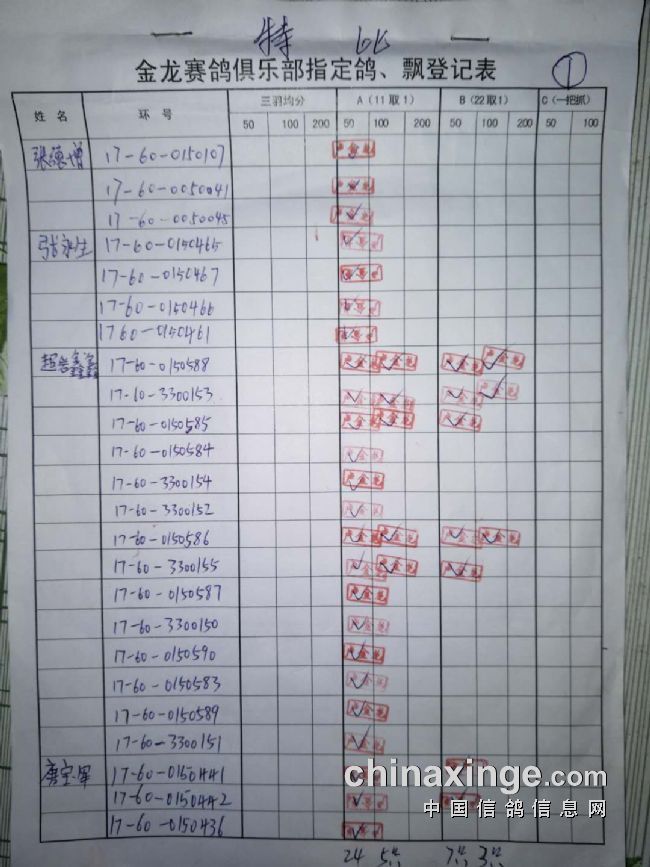 特比
金龙赛鸽俱乐部指定鸽、飘登记表 ①
姓名 环号 三羽均分 A（11取1） B（22取1） C（一把抓）
50 100 200 50 100 200 50 100 200 50 100
张德增 17-60-0150107
17-60-0050041
17-60-0050045
张永生 17-60-0150465
17-60-0150467
17-60-0150466
1760-0150461
17-60-0150588
17-60-3300153
17-60-0150585
17-60-0150584
17-60-3300154
17-60-3300152
17-60-0150586
17-60-3300155
17-60-0150587
17-60-3300150
17-60-0150590
17-60-0150583
17-60-0150589
17-60-3300151
唐宝军 17-60-0150441
17-60-0150442
17-60-0150436
24 5只 7只 3只
chinaxinge.com
中国信鸽信息网